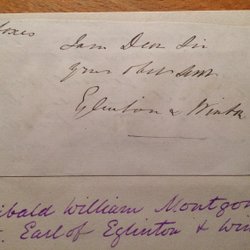 I am Dear Sir
Your Obet Servt
Eglinton & Winton
ibald William Montgo
Earl of Eglinton & Win